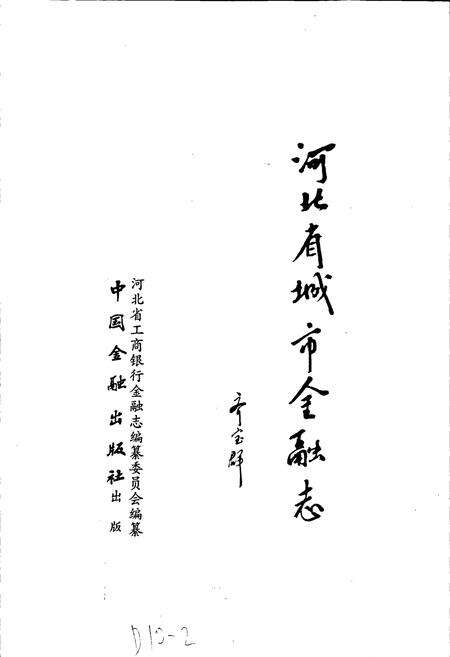 河北省城市金融志
齐宝群
河北省工商银行金融志编纂委员会编纂
中国金融出版社出版
D10-2